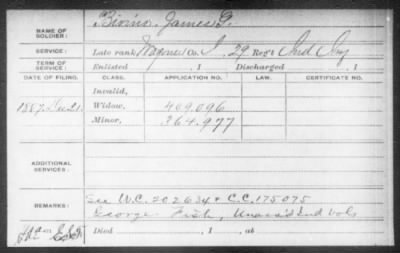 NAME OF SOLDIER: James G.
SERVICE: Late rank, Wagoner Co. I, 29 Reg't Ind Inf
TERM OF SERVICE: Enlisted , 1 Discharged , 1
DATE OF FILING. CLASS. APPLICATION NO. LAW. CERTIFICATE NO.
Invalid,
1887 Dec 21. Widow, 409,096
Minor, 364,977
ADDITIONAL SERVICES:
REMARKS: See W.C. 202634 + C.C. 175075
George Fish, Unass'd Ind Vols
Died , 1 , at